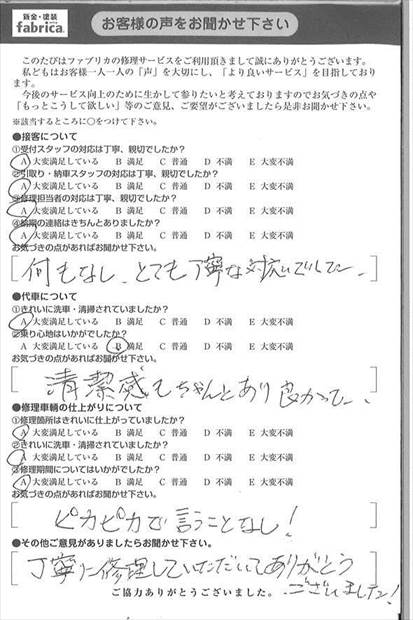 鈑金・塗装
fabrica.
お客様の声をお聞かせ下さい
このたびはファブリカの修理サービスをご利用頂きまして誠にありがとうございます。
私どもはお客様一人一人の「声」を大切にし、「より良いサービス」を目指しております。
今後のサービス向上のために生かして参りたいと考えておりますのでお気づきの点や
「もっとこうして欲しい」等のご意見、ご要望がございましたら是非お聞かせ下さい。
※該当するところに○をつけて下さい。
●接客について
①受付スタッフの対応は丁寧、親切でしたか?
A 大変満足している B 満足 C 普通 D 不満 E 大変不満
②引取り・納車スタッフの対応は丁寧、親切でしたか?
A 大変満足している B 満足 C 普通 D 不満 E 大変不満
③修理担当者の対応は丁寧、親切でしたか?
A 大変満足している B 満足 C 普通 D 不満 E 大変不満
④納期の連絡はきちんとありましたか?
A 大変満足している B 満足 C 普通 D 不満 E 大変不満
お気づきの点があればお聞かせ下さい。
何もなし、とても丁寧な対応いでした。
●代車について
①きれいに洗車・清掃されていましたか?
A 大変満足している B 満足 C 普通 D 不満 E 大変不満
②乗り心地はいかがでしたか?
A 大変満足している B 満足 C 普通 D 不満 E 大変不満
お気づきの点があればお聞かせ下さい。
清潔感もちゃんとあり良かった、
●修理車輌の仕上がりについて
①修理箇所はきれいに仕上がっていましたか?
A 大変満足している B 満足 C 普通 D 不満 E 大変不満
②きれいに洗車・清掃されていましたか?
A 大変満足している B 満足 C 普通 D 不満 E 大変不満
③修理期間についてはいかがでしたか?
A 大変満足している B 満足 C 普通 D 不満 E 大変不満
お気づきの点があればお聞かせ下さい。
ピカピカで言うことなし!
●その他ご意見がありましたらお聞かせ下さい。
丁寧に修理していただいてありがとう
ございました!
ご協力ありがとうございました。